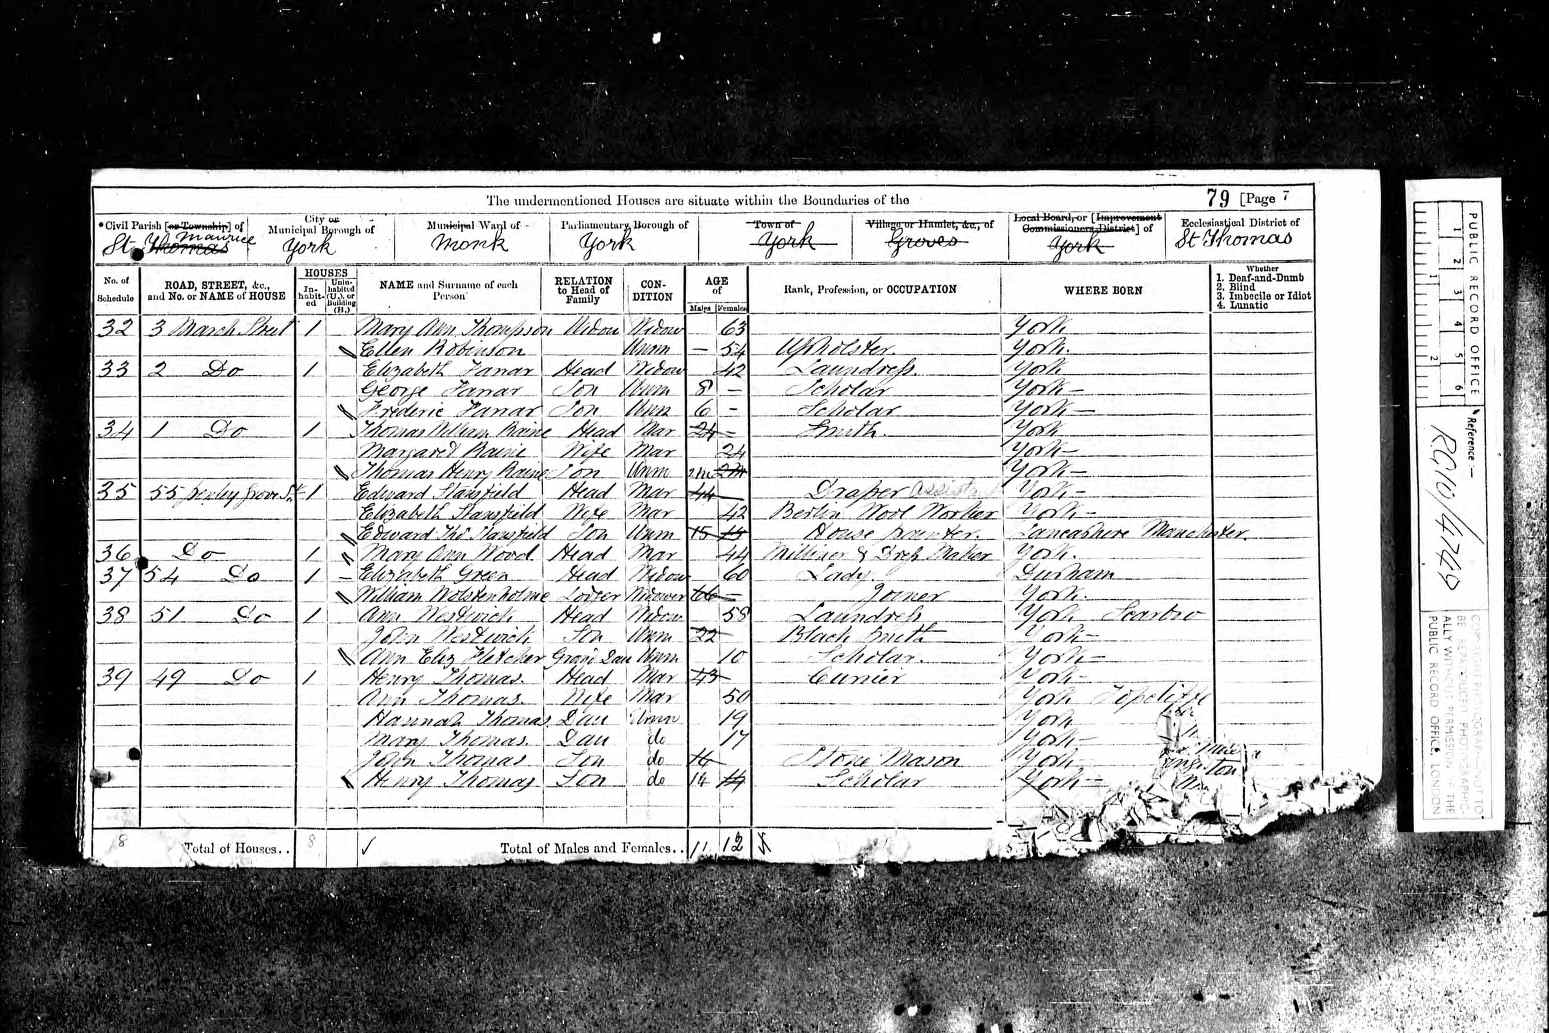 The undermentioned Houses are situate within the Boundaries of the 79 [Page 7
*Civil Parish [or Township] of City or Municipal Borough of Municipal Ward of Parliamentary Borough of Town of Village or Hamlet, &c., of Local Board, or [Improvement Commissioners District] of Ecclesiastical District of
St Maurice Thomas York Monk York York Groves York St Thomas
No. of Schedule ROAD, STREET, &c., and No. or NAME of HOUSE HOUSES Inhabited Uninhabited (U.), or Building (B.) NAME and Surname of each Person RELATION to Head of Family CONDITION AGE of Males Females Rank, Profession, or OCCUPATION WHERE BORN Whether 1. Deaf-and-Dumb 2. Blind 3. Imbecile or Idiot 4. Lunatic
32 3 March Street 1 Mary Ann Thompson Widow Widow 63 York
Ellen Robinson Unm – 54 Upholster. York.
33 2 Do 1 Elizabeth Fanar Head Widow 42 Laundress. York
George Fanar Son Unm 8 – Scholar York –
Frederic Fanar Son Unm 6 – Scholar York –
34 1 Do 1 Thomas William Raine Head Mar 24 – Smith. York
Margaret Raine Wife Mar 24 York –
Thomas Henry Raine Son Unm York –
35 55 Grove St 1 Edward Stansfield Head Mar 44 Draper Assist York –
Elizabeth Stansfield Wife Mar 42 Berlin Wool Worker York –
Edward Thos Stansfield Son Unm 15 15 House painter. Lancashire Manchester.
36 Do 1 Mary Ann Wood Head Mar 44 Milliner & Dress Maker York.
37 54 Do 1 – Elizabeth Green Head Widow 60 Lady. Durham
William Wolstenholme Lodger Widower 66 – Joiner York.
38 51 Do 1 Ann Westwick Head Widow 58 Laundress York Scarbro
John Westwick Son Unm 22 Black Smith York –
Ann Eliz Fletcher Grand Dau Unm 10 Scholar. York –
39 49 Do 1 Henry Thomas. Head Mar 43 Currier York –
Ann Thomas. Wife Mar 50 York
Hannah Thomas Dau Unm 19 York
Mary Thomas. Dau do 17 York –
John Thomas Son do 16 Stone Mason York –
Henry Thomas Son do 14 14 Scholar York –
8 Total of Houses.. 8 Total of Males and Females.. 11 12
PUBLIC RECORD OFFICE
1 2 3 4 5 6
1 2
Reference:—
RG 10/4749
COPYRIGHT PHOTOGRAPH—NOT TO BE REPRODUCED PHOTOGRAPHICALLY WITHOUT PERMISSION OF THE PUBLIC RECORD OFFICE, LONDON